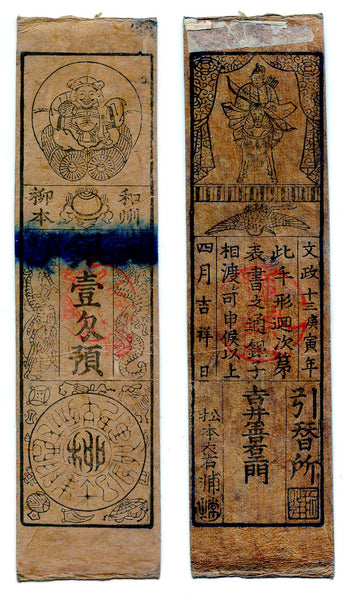 和州
柳本
銀壹匁預
文政十三庚寅年
此手形廻次第
表書之通銀子
相渡可申候以上
四月吉祥日
引替所
吉井善右衛門
松本